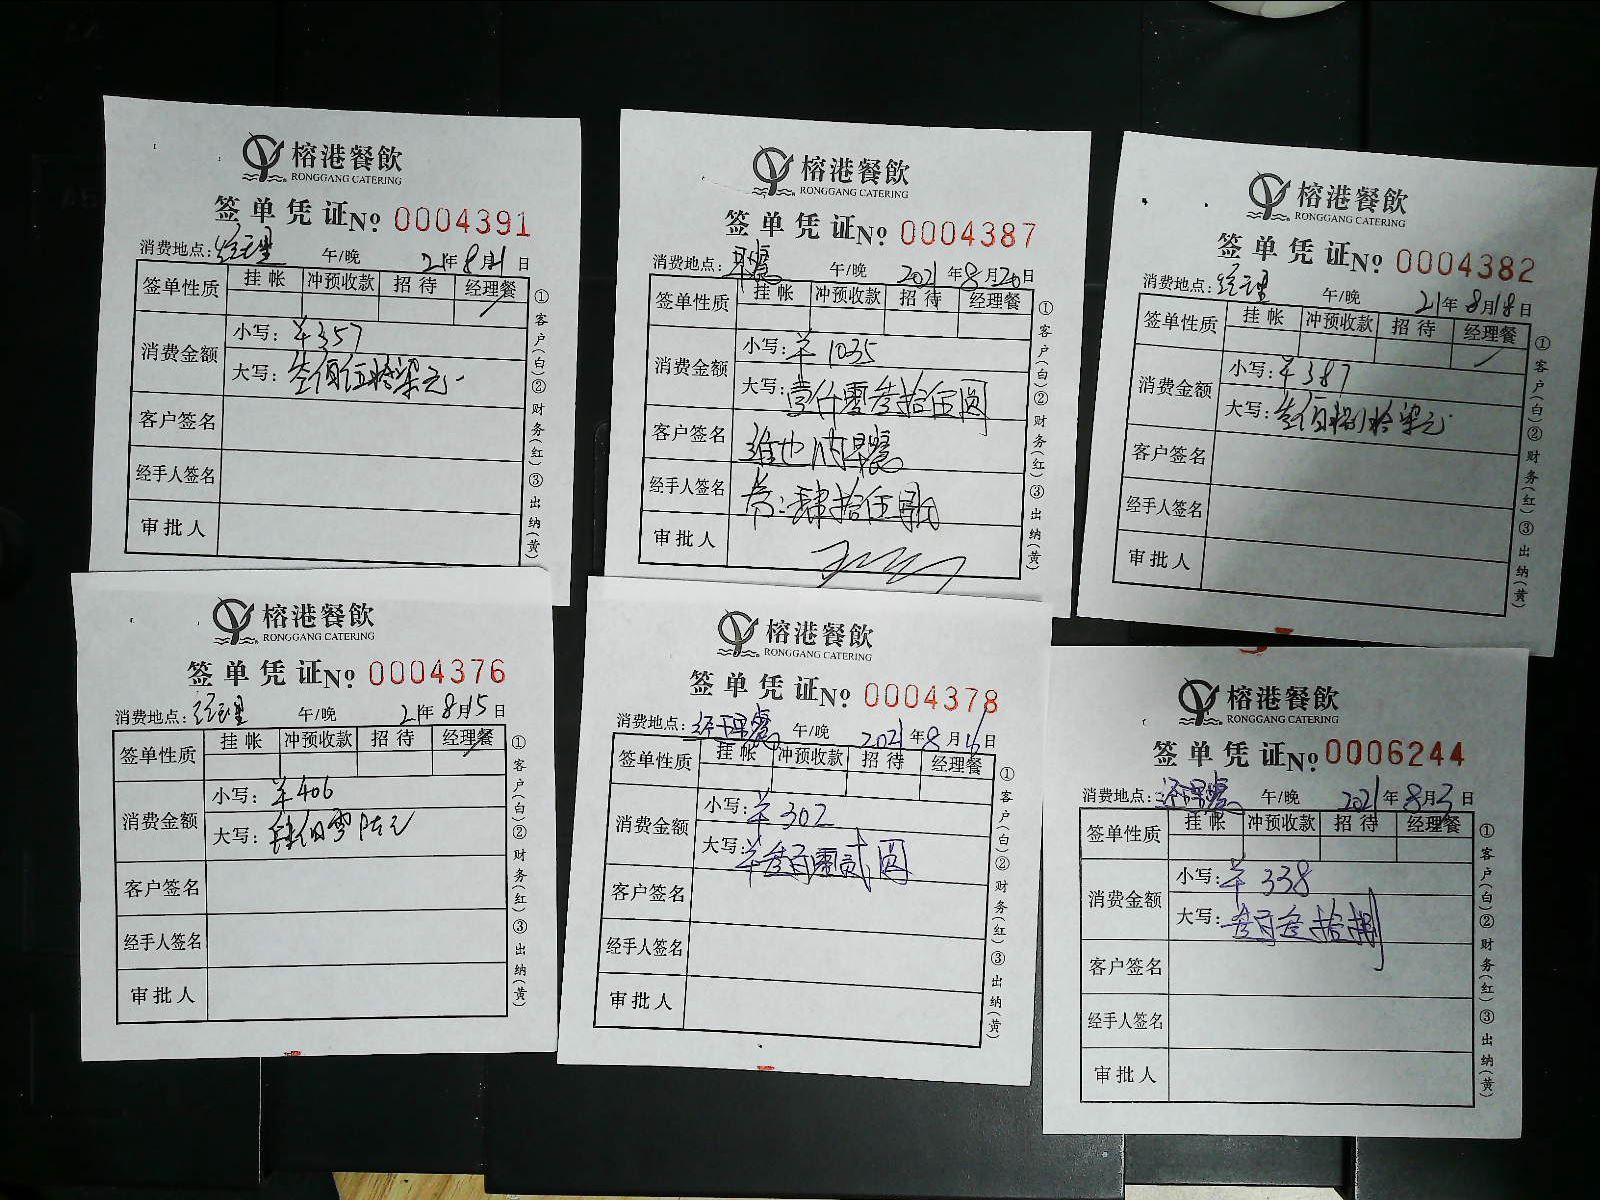 榕港餐飲
RONGGANG CATERING
签单凭证No 0004391
消费地点：经理 午/晚 21年8月21日
签单性质 挂帐 冲预收款 招待 经理餐
消费金额 小写：¥357
大写：叁佰伍拾柒元
客户签名
经手人签名
审批人
①客户(白)②财务(红)③出纳(黄)
榕港餐飲
RONGGANG CATERING
签单凭证No 0004387
消费地点：早餐 午/晚 2021年8月20日
签单性质 挂帐 冲预收款 招待 经理餐
消费金额 小写：¥1035
大写：壹仟零叁拾伍圆
客户签名 维也纳早餐
经手人签名 肆拾伍
审批人
①客户(白)②财务(红)③出纳(黄)
榕港餐飲
RONGGANG CATERING
签单凭证No 0004382
消费地点：经理 午/晚 21年8月18日
签单性质 挂帐 冲预收款 招待 经理餐
消费金额 小写：¥387
大写：叁佰捌拾柒元
客户签名
经手人签名
审批人
①客户(白)②财务(红)③出纳(黄)
榕港餐飲
RONGGANG CATERING
签单凭证No 0004376
消费地点：经理 午/晚 21年8月15日
签单性质 挂帐 冲预收款 招待 经理餐
消费金额 小写：¥406
大写：肆佰零陆元
客户签名
经手人签名
审批人
①客户(白)②财务(红)③出纳(黄)
榕港餐飲
RONGGANG CATERING
签单凭证No 0004378
消费地点：经理餐 午/晚 2021年8月16日
签单性质 挂帐 冲预收款 招待 经理餐
消费金额 小写：¥302
大写：¥叁百零贰圆
客户签名
经手人签名
审批人
①客户(白)②财务(红)③出纳(黄)
榕港餐飲
RONGGANG CATERING
签单凭证No 0006244
消费地点：经理餐 午/晚 2021年8月3日
签单性质 挂帐 冲预收款 招待 经理餐
消费金额 小写：¥338
大写：叁百叁拾捌
客户签名
经手人签名
审批人
①客户(白)②财务(红)③出纳(黄)